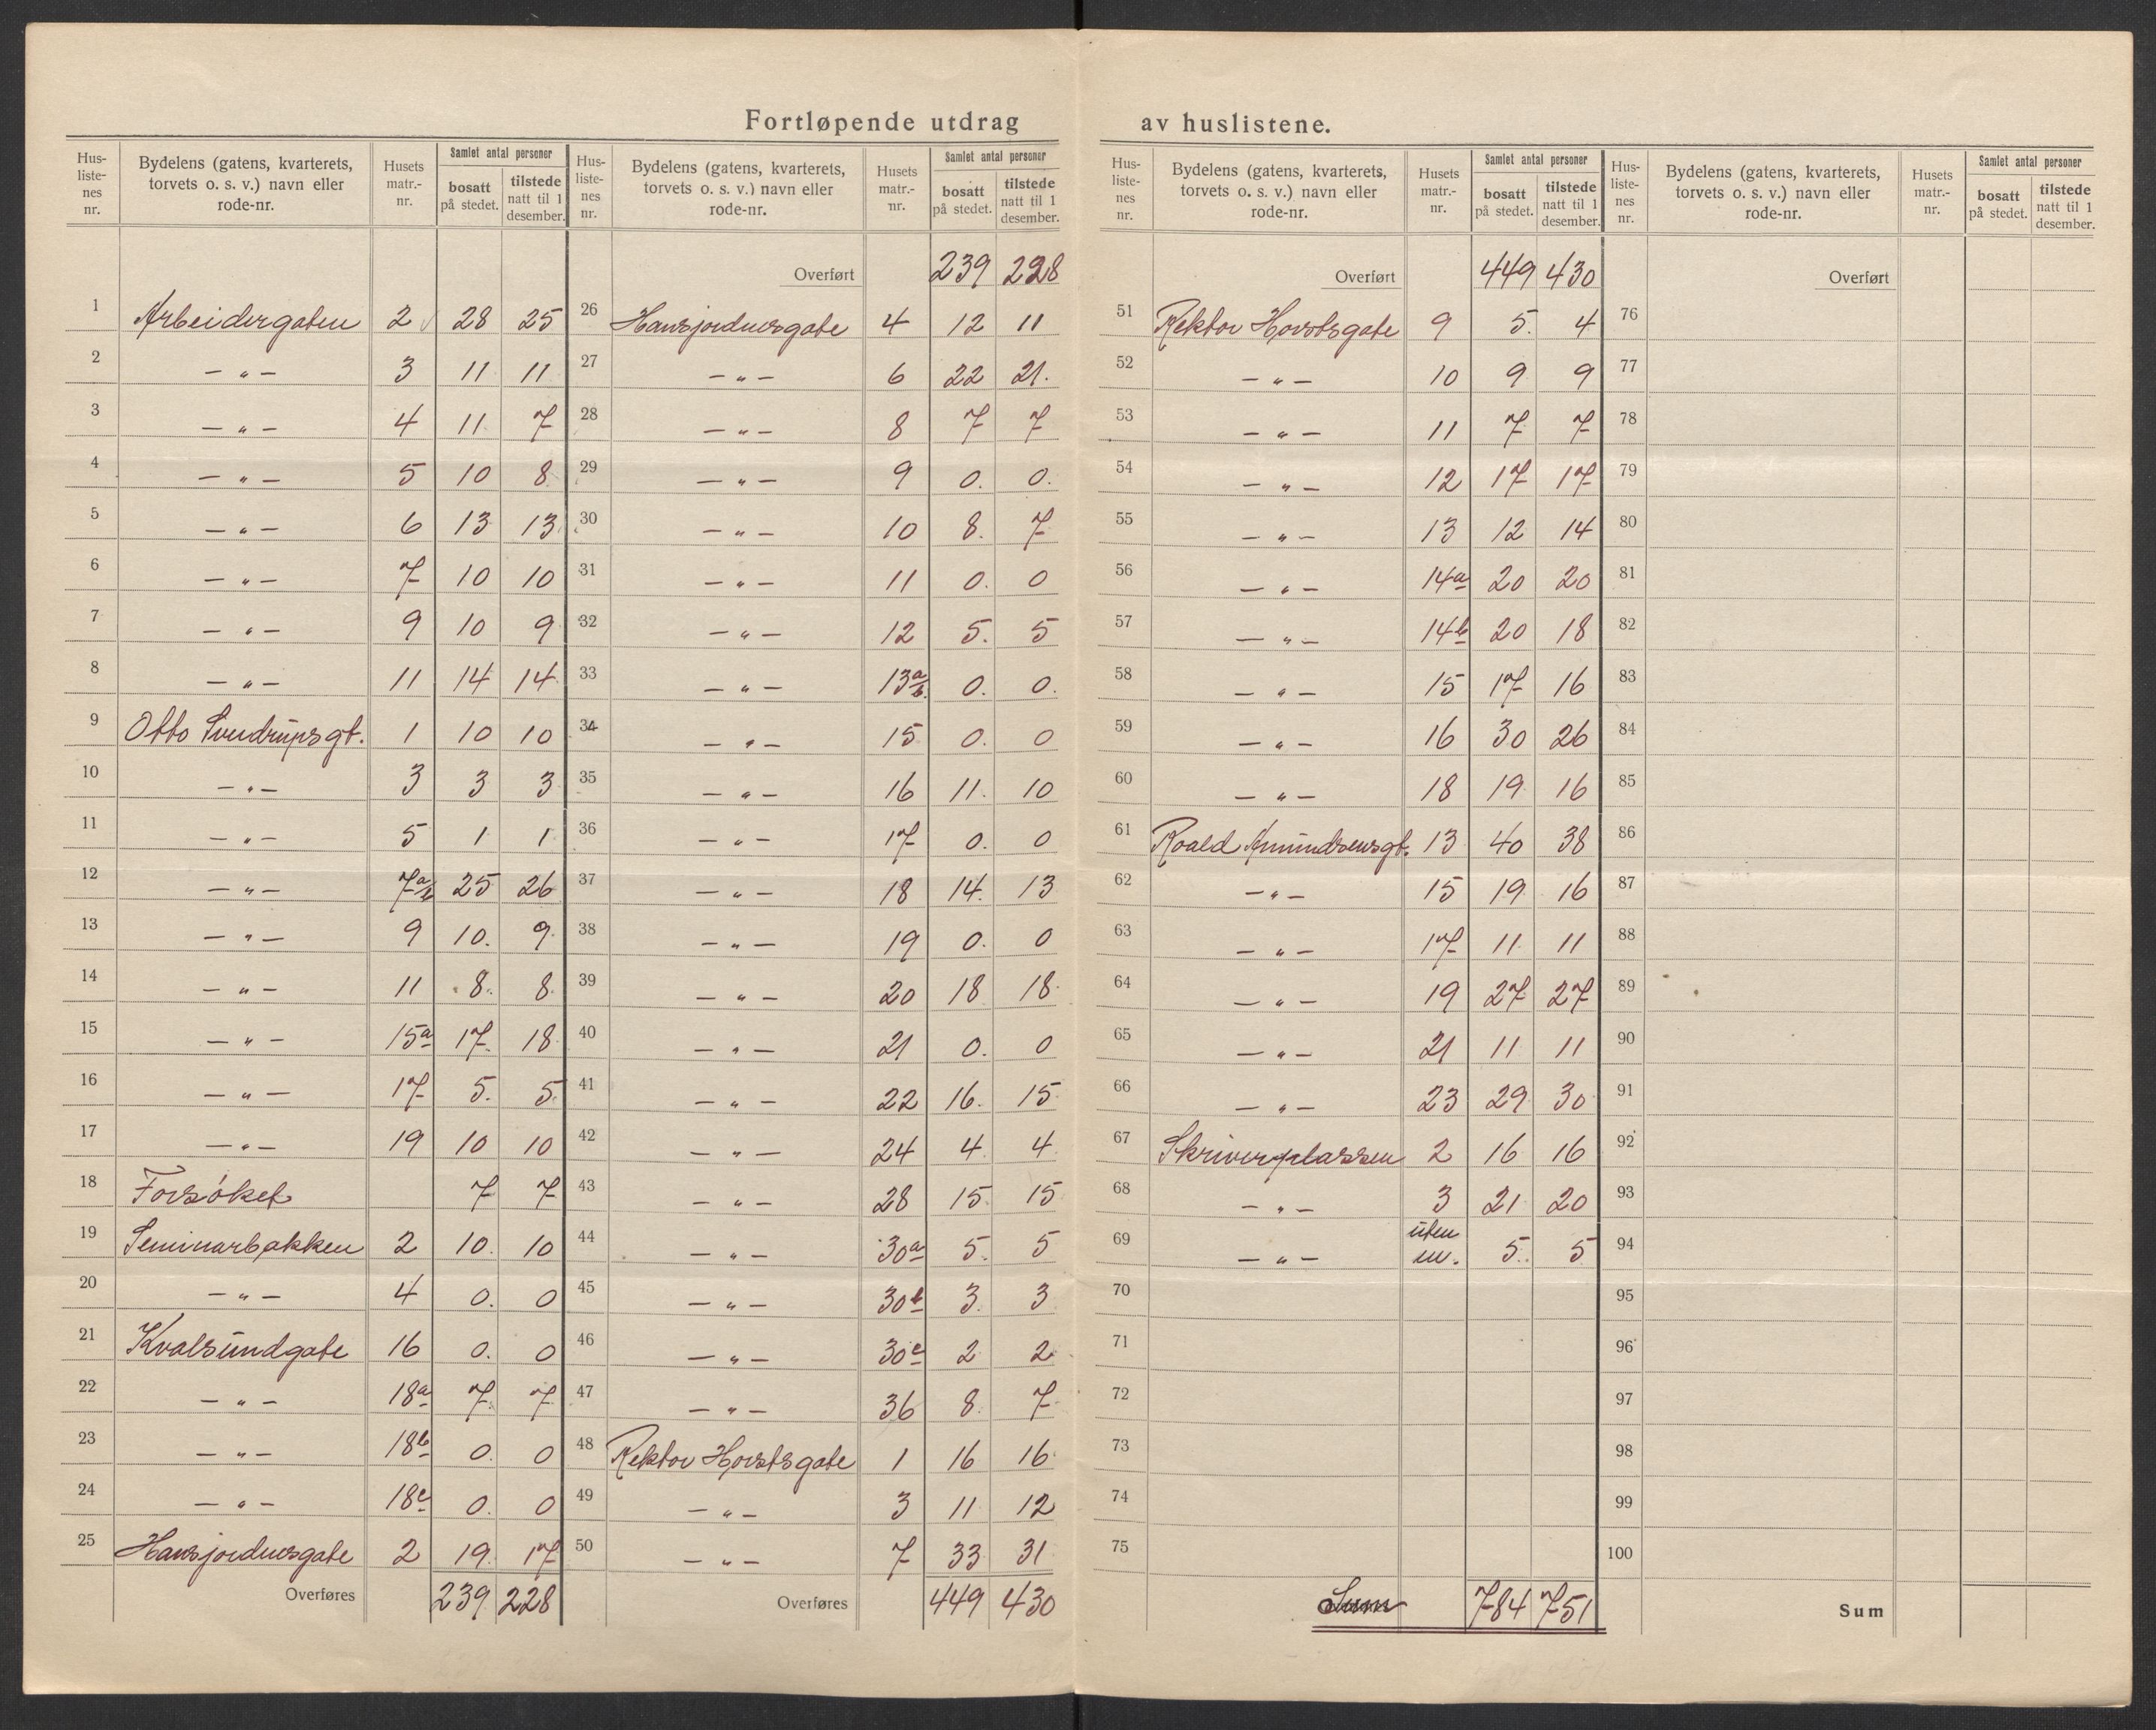 Fortløpende utdrag av huslistene.
Hus-listenes nr. | Bydelens (gatens, kvarterets, torvets o. s. v.) navn eller rode-nr. | Husets matr.-nr. | Samlet antal personer bosatt på stedet. | tilstede natt til 1 desember.
1 Arbeidergaten 2 28 25
2 — " — 3 11 11
3 — " — 4 11 7
4 — " — 5 10 8
5 — " — 6 13 13
6 — " — 7 10 10
7 — " — 9 10 9
8 — " — 11 14 14
9 Otto Sverdrupsgt. 1 10 10
10 — " — 3 3 3
11 — " — 5 1 1
12 — " — 7a/b 25 26
13 — " — 9 10. 9
14 — " — 11 8. 8
15 — " — 15a 17. 18
16 — " — 17 5. 5.
17 — " — 19 10 10
18 Forsøket 7 7
19 Seminarbakken 2 10. 10
20 — " — 4 0. 0
21 Kvalsundgate 16 0. 0
22 — " — 18a 7. 7
23 — " — 18b 0. 0
24 — " — 18c 0. 0
25 Hansjordnesgate 2 19. 17
Overføres 239 228
Hus-listenes nr. | Bydelens (gatens, kvarterets, torvets o. s. v.) navn eller rode-nr. | Husets matr.-nr. | Samlet antal personer bosatt på stedet. | tilstede natt til 1 desember.
Overført 239 228
26 Hansjordnesgate 4 12 11
27 — " — 6 22 21.
28 — " — 8 7 7
29 — " — 9 0. 0.
30 — " — 10 8. 7
31 — " — 11 0. 0
32 — " — 12 5. 5
33 — " — 13a/b. 0. 0.
34 — " — 15 0. 0
35 — " — 16 11. 10
36 — " — 17 0. 0
37 — " — 18 14. 13
38 — " — 19 0. 0
39 — " — 20 18 18
40 — " — 21 0. 0
41 — " — 22 16. 15
42 — " — 24 4 4
43 — " — 28 15. 15
44 — " — 30a 5. 5
45 — " — 30b 3. 3
46 — " — 30c 2 2
47 — " — 36 8. 7
48 Rektor Horstsgate 1 16 16
49 — " — 3 11 12
50 — " — 7 33 31
Overføres 449 430
Hus-listenes nr. | Bydelens (gatens, kvarterets, torvets o. s. v.) navn eller rode-nr. | Husets matr.-nr. | Samlet antal personer bosatt på stedet. | tilstede natt til 1 desember.
Overført 449 430
51 Rektor Horstsgate 9 5. 4
52 — " — 10 9 9
53 — " — 11 7 7
54 — " — 12 17 17
55 — " — 13 12 14
56 — " — 14a 20 20
57 — " — 14b 20 18
58 — " — 15 17 16
59 — " — 16 30 26
60 — " — 18 19 16
61 Roald Amundsensgt. 13 40 38
62 — " — 15 19 16
63 — " — 17 11 11
64 — " — 19 27 27
65 — " — 21 11 11
66 — " — 23 29 30
67 Skriverplassen 2 16 16
68 — " — 3 21 20
69 — " — uten m. 5. 5
70
71
72
73
74
75
Sum 784 751
Hus-listenes nr. | Bydelens (gatens, kvarterets, torvets o. s. v.) navn eller rode-nr. | Husets matr.-nr. | Samlet antal personer bosatt på stedet. | tilstede natt til 1 desember.
Overført
76
77
78
79
80
81
82
83
84
85
86
87
88
89
90
91
92
93
94
95
96
97
98
99
100
Sum